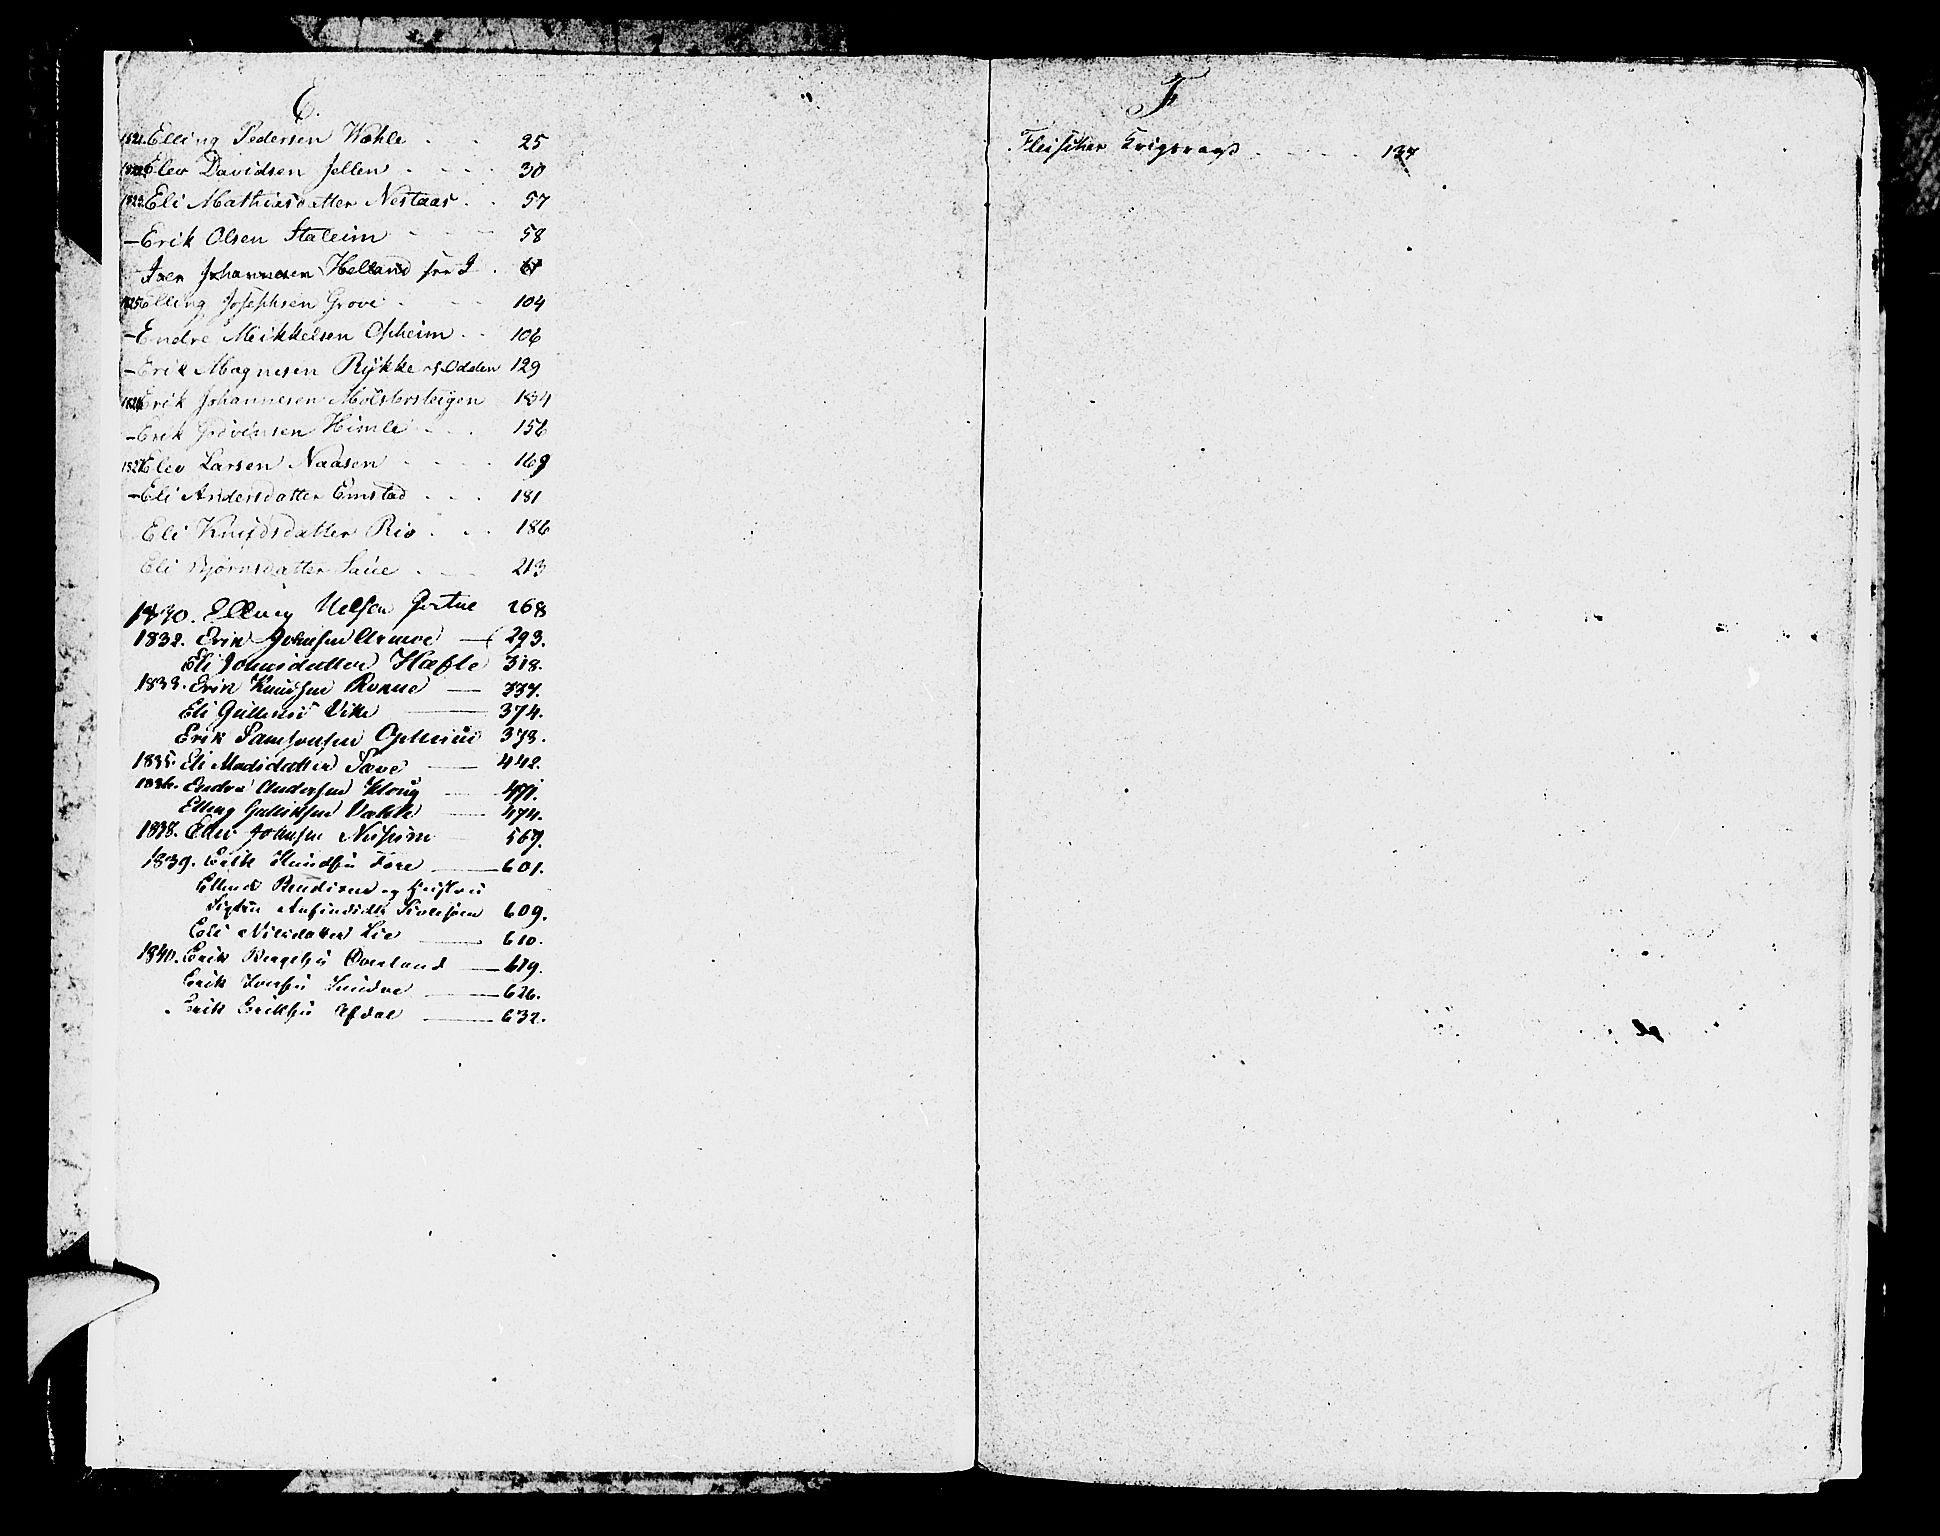 E.
1821. Elling Pedersen Wæhle 25
Elev Davidsen Jellen 30
1823. Eli Mathiasdatter Nestaas 57
- Erik Olsen Staleim 58
Iver Johannesen Helland see I. 61
1825. Elling Josephsen Grove 104
- Endre Mikkelsen Opheim 106
- Erik Magnesen Rykke of Odden 129
1826. Erik Johannesen Mölstersteigen 134
- Erik Himle 156
1827. Elev Larsen Naasen 169
- Eli Andersdatter Emstad 181
Eli Knudsdatter Rio 186
Eli Bjørnsdatter Saue 213
1830. Elling Nelsen Gjerstad 268
1832. Erik Johnsen 293.
Eli Johnsdatter Hæfte 318.
1833. Erik Knudsen Rokne 337.
Eli Gullensd Vike 374.
Erik Samsonsen Opheim 378.
1835. Eli Madsdatter Save 442.
1836. Endre Andersen Kloug 471.
Elling Gulliksen Væhle 474.
1838. Elev Johnsen Nesheim 567.
1839. Erik Knudsen Fære 601.
Ellend og
Anfindsdtr 609.
Eli Nilsdatter Lie 610.
1840. Erik Bergesen Øvreland 619.
Erik Iversen Sundve 626.
Erik Eriksen Afdal 632.
F
Fleischer Krigsraad 137